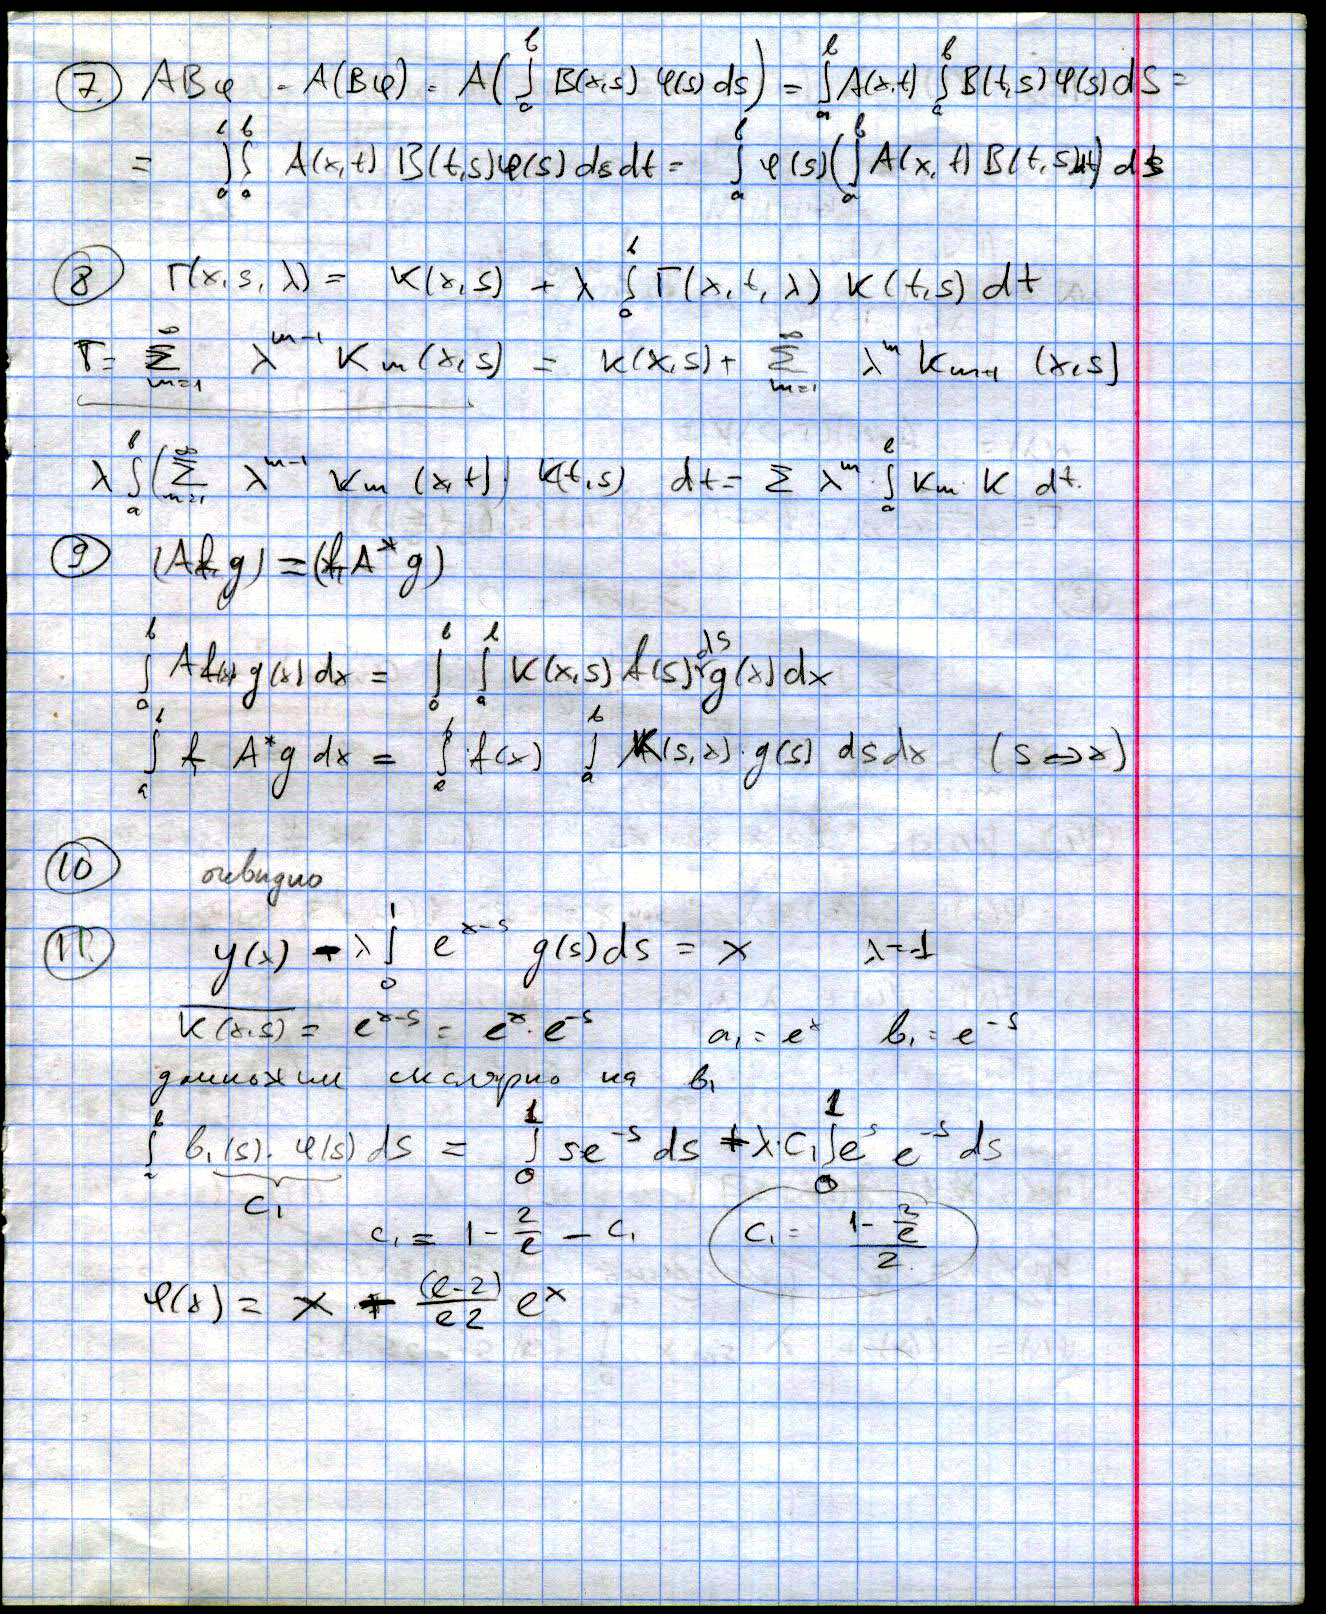 7. ABφ = A(Bφ) = A(∫_a^b B(x,s) φ(s) ds) = ∫_a^b A(x,t) ∫_a^b B(t,s) φ(s) dS =
= ∫_a^b ∫_a^b A(x,t) B(t,s) φ(s) ds dt = ∫_a^b φ(s) (∫_a^b A(x,t) B(t,s) dt) ds
8 Γ(x,s,λ) = K(x,s) + λ ∫_a^b Γ(x,t,λ) K(t,s) dt
Γ = Σ_{m=1}^∞ λ^{m-1} K_m (x,s) = K(x,s) + Σ_{m=1}^∞ λ^m K_{m+1} (x,s)
λ ∫_a^b (Σ_{m=1}^∞ λ^{m-1} K_m (x,t)) K(t,s) dt = Σ λ^m · ∫_a^b K_m · K dt.
9 (Af, g) = (f, A* g)
∫_a^b Af(x) g(x) dx = ∫_a^b ∫_a^b K(x,s) f(s) ds g(x) dx
∫_a^b f A* g dx = ∫_a^b f(x) ∫_a^b K(s,x) · g(s) ds dx (s ⇔ x)
10 очевидно
11. y(x) - λ ∫_0^1 e^{x-s} y(s) ds = x λ = -1
K(x,s) = e^{x-s} = e^x · e^{-s} a_1 = e^x b_1 = e^{-s}
домножим скалярно на b_1
∫_a^b b_1(s) · φ(s) ds = ∫_0^1 s e^{-s} ds + λ · C_1 ∫_0^1 e^s e^{-s} ds
C_1
C_1 = 1 - 2/e - C_1 C_1 = (1 - 2/e)/2
φ(x) = x + (e-2)/(e2) e^x